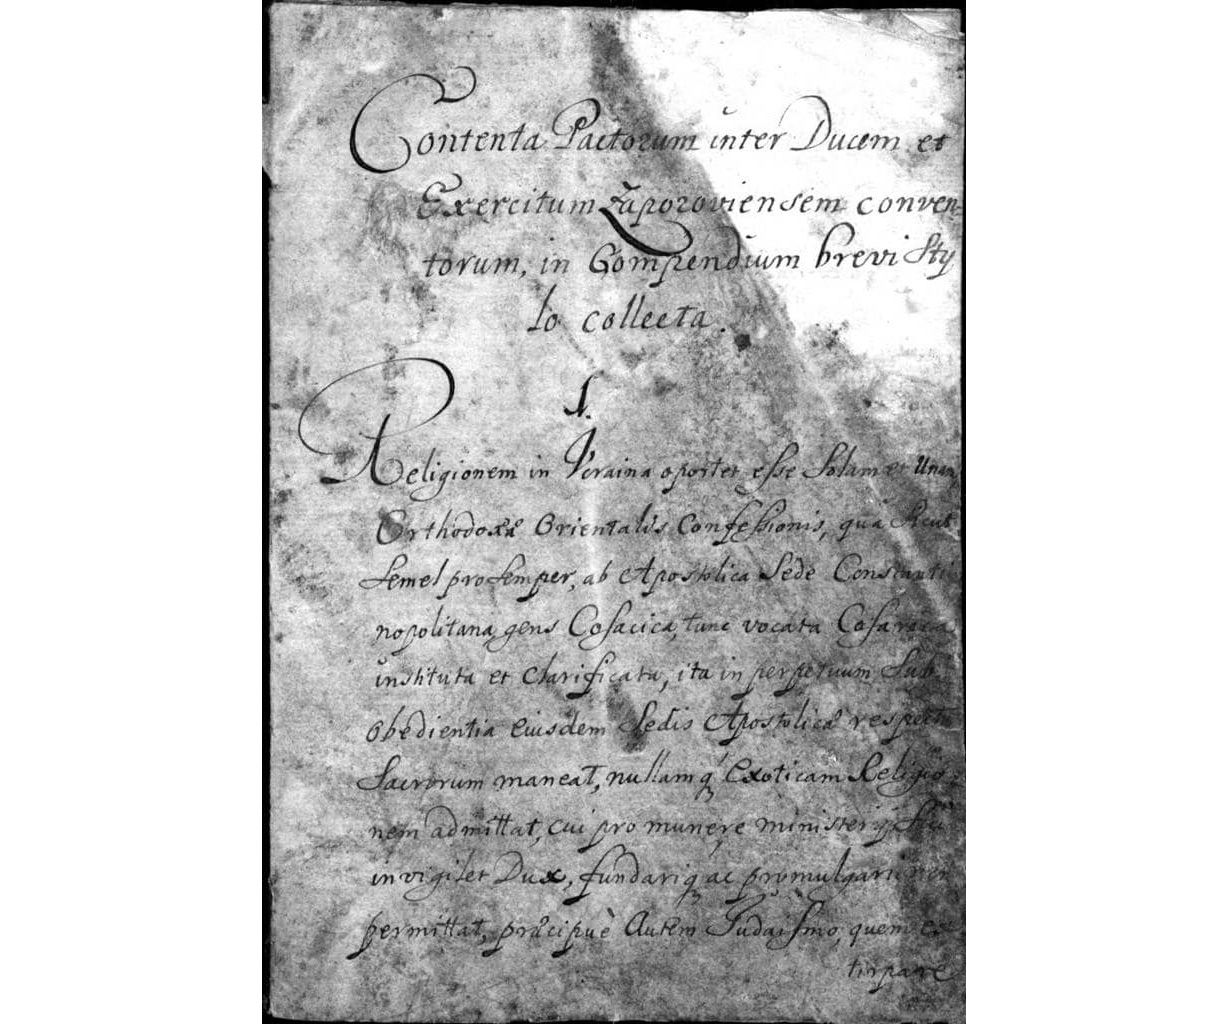 Contenta Pactorum inter Ducem et
Exercitum Zaporoviensem conven-
torum, in Compendium brevi Sty
lo collecta.
1.
Religionem in Ucraina oportet esse Solam et Unam
Orthodoxæ Orientalis Confessionis, quâ sicut
Semel pro Semper, ab Apostolica Sede Constanti
nopolitana gens Cosacica, tunc vocata Cosarica
instituta et clarificata, ita in perpetuum Sub
obedientia eiusdem Sedis Apostolicæ respectu
Sacrorum maneat, nullamq́ Exoticam Religio-
nem admittat, cui pro munere ministerii sui
invigilet Dux, fundariq ac promulgari non
permittat, præcipuè Autem Judaismo, quem ex
tirpare